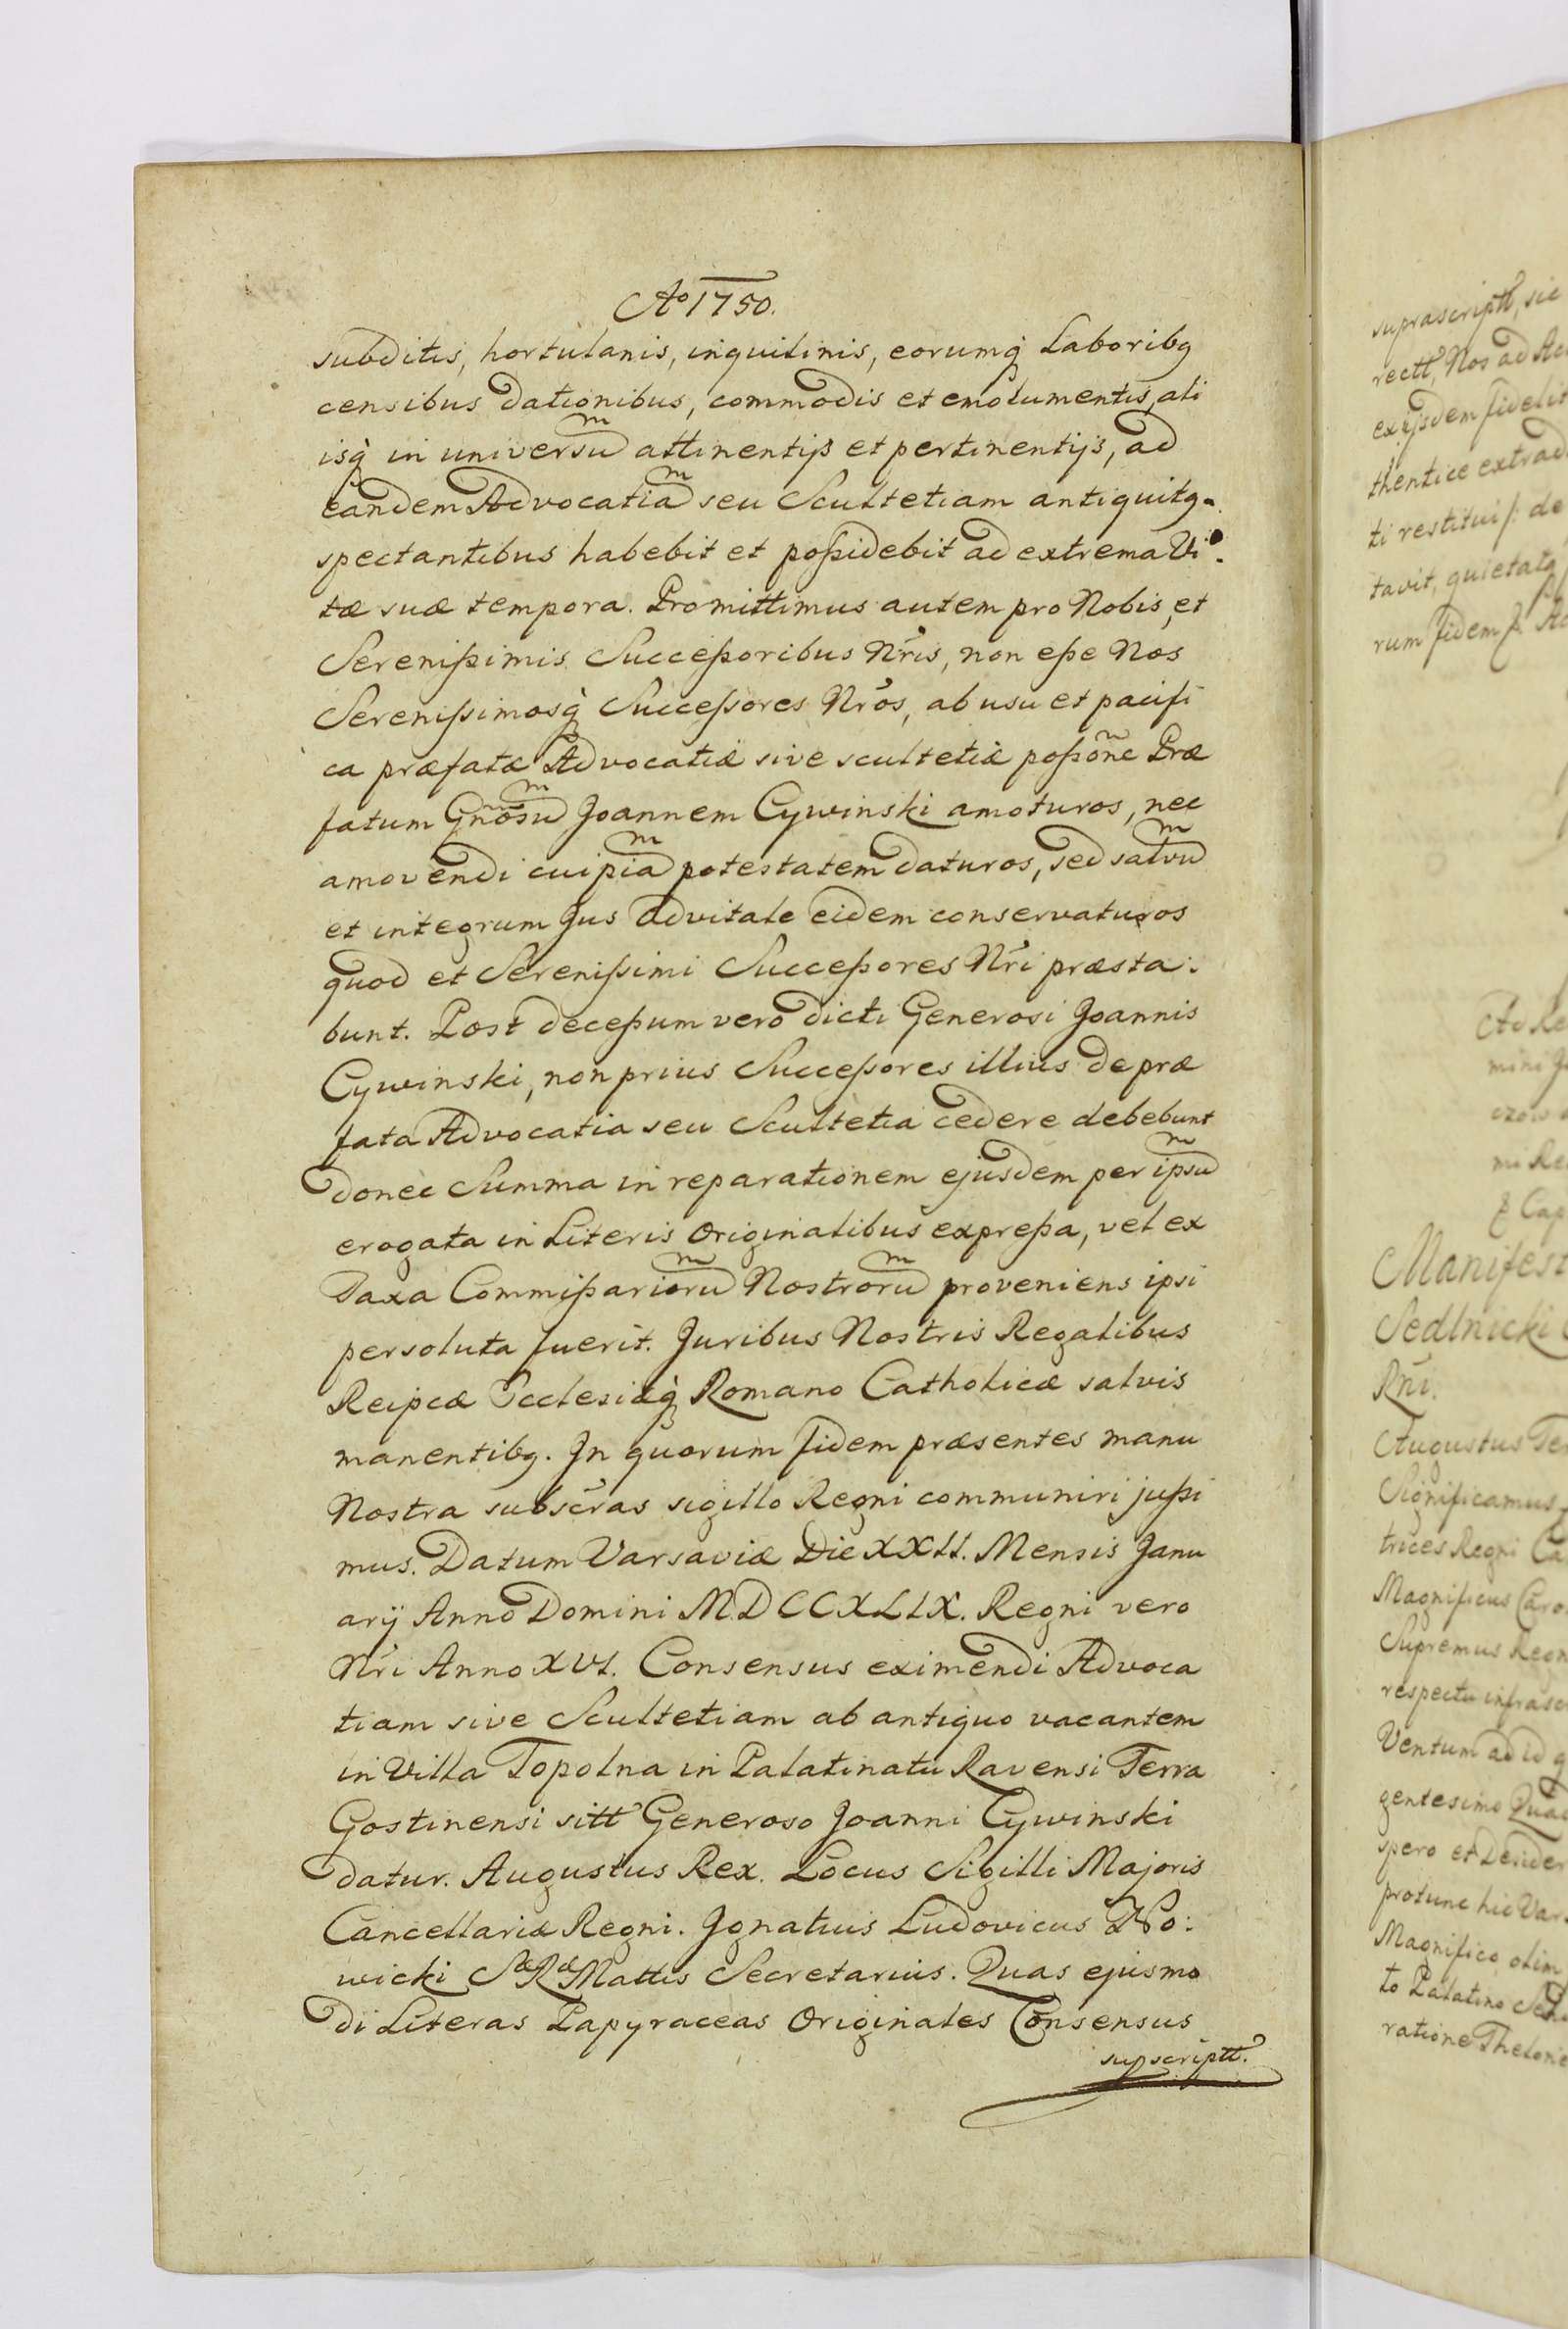 Aº 1750.
subditis, hortulanis, inquilinis, eorumq̀ Laboribg
censibus dationibus, commodis et emolumentis, ali
isq̀ in universũ attinentijs et pertinentijs, ad
eandem Advocatiã seu Scultetiam antiquitg.
spectantibus habebit et poßidebit ad extrema Vi:
tæ suæ tempora. Promittimus autem pro Nobis, et
Serenißimis Succeßoribus Nr̃is, non eße Nos
Serenißimosq̀ Succeßores Nr̃os, ab usu et pacifi
ca præfatæ Advocatiæ sive scultetiæ poßõne Præ
fatum Gnõsũ Joannem Cywinski amoturos, nec
amovendi cuipiã potestatem daturos, sed salvũ
et integrum Jus advitale eidem conservaturos
quod et Serenißimi Succeßores Nr̃i præsta:
bunt. Post deceßum vero dicti Generosi Joannis
Cywinski, non prius Succeßores illius de præ
fata Advocatia seu Scultetia cedere debebunt
donec Summa in reparationem ejusdem per ipsũ
erogata in Literis Originalibus expreßa, vel ex
Taxa Commißariorũ Nostrorũ proveniens ipsi
persoluta fuerit. Juribus Nostris Regalibus
Reipcæ Ecclesiæq̀ Romano Catholicæ salvis
manentibg. Jn quorum fidem præsentes manu
Nostra subscr̃as sigillo Regni communiri jußi
mus. Datum Varsaviæ Die XXII. Mensis Janu
arij Anno Domini MDCCXLIX. Regni vero
Nr̃i Anno XVI. Consensus eximendi Advoca
tiam sive Scultetiam ab antiquo vacantem
in Villa Topolna in Palatinatu Ravensi Terra
Gostinensi sitt Generoso Joanni Cywinski
datur. Augustus Rex. Locus Sigilli Majoris
Cancellariæ Regni. Jgnatius Ludovicus No:
wicki Sæ Ræ Mattis Secretarius. Quas ejusmo
di Literas Papyraceas Originales Consensus
supscriptt.
suprascriptt, sic
rectt, Nos ad
exijsdem fidelit
thentice extrad
ti restituiß: de
tavit, quietatg
rum fidem
mi Re
Manifest
Sedlnicki
Rñi.
Augustus Ter
Significamus
trices Regni Ca
Magnificus Caro
Supremus Regn
respectu infrasc
Ventum ad id q
gentesimo Qua
spero et
protunc hic Vars
Magnifico olim
to Palatino
ratione Thelone